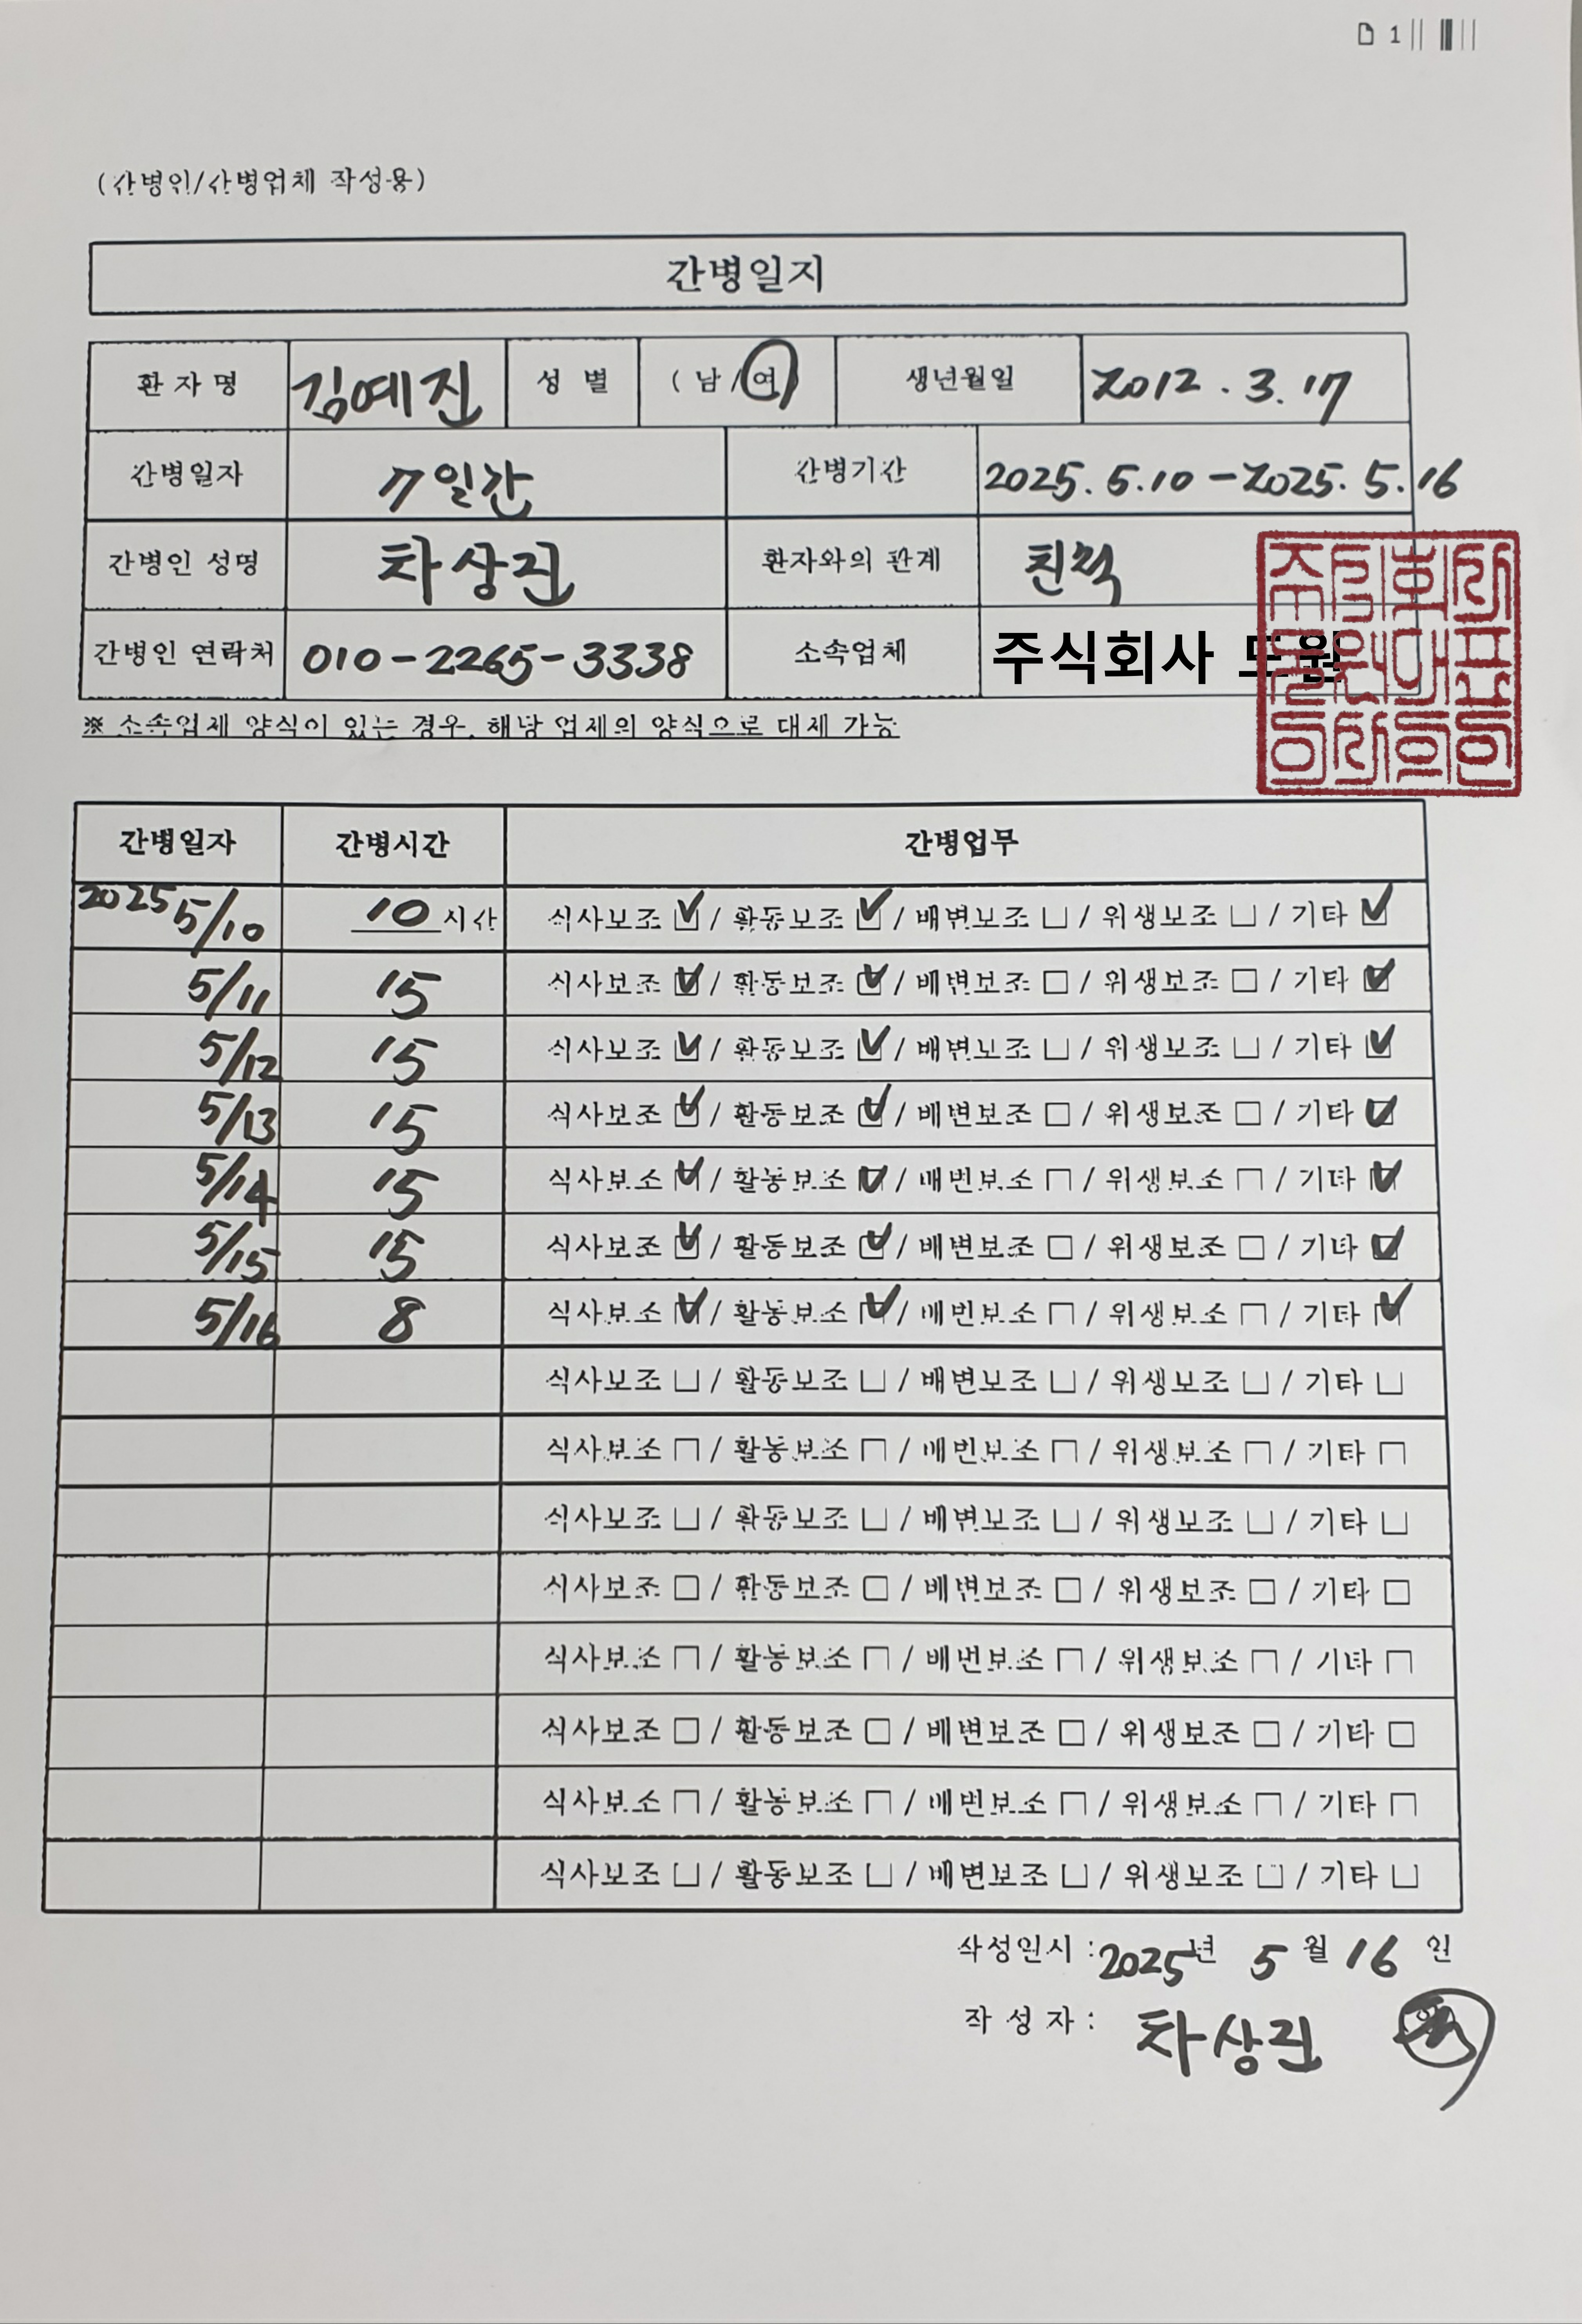 1
(간병인/간병업체 작성용)
간병일지
환 자 명 김예진 성 별 ( 남 / 여 ) 생년월일 2012 . 3. 17
간병일자 7일간 간병기간 2025. 5.10 - 2025. 5. 16
간병인 성명 차상진 환자와의 관계 친척
간병인 연락처 010-2265-3338 소속업체 주식회사 도원
※ 소속업체 양식이 있는 경우, 해당 업체의 양식으로 대체 가능
간병일자 간병시간 간병업무
2025 5/10 10 시간 식사보조 ☑ / 활동보조 ☑ / 배변보조 □ / 위생보조 □ / 기타 ☑
5/11 15 식사보조 ☑ / 활동보조 ☑ / 배변보조 □ / 위생보조 □ / 기타 ☑
5/12 15 식사보조 ☑ / 활동보조 ☑ / 배변보조 □ / 위생보조 □ / 기타 ☑
5/13 15 식사보조 ☑ / 활동보조 ☑ / 배변보조 □ / 위생보조 □ / 기타 ☑
5/14 15 식사보조 ☑ / 활동보조 ☑ / 배변보조 □ / 위생보조 □ / 기타 ☑
5/15 15 식사보조 ☑ / 활동보조 ☑ / 배변보조 □ / 위생보조 □ / 기타 ☑
5/16 8 식사보조 ☑ / 활동보조 ☑ / 배변보조 □ / 위생보조 □ / 기타 ☑
식사보조 □ / 활동보조 □ / 배변보조 □ / 위생보조 □ / 기타 □
식사보조 □ / 활동보조 □ / 배변보조 □ / 위생보조 □ / 기타 □
식사보조 □ / 활동보조 □ / 배변보조 □ / 위생보조 □ / 기타 □
식사보조 □ / 활동보조 □ / 배변보조 □ / 위생보조 □ / 기타 □
식사보조 □ / 활동보조 □ / 배변보조 □ / 위생보조 □ / 기타 □
식사보조 □ / 활동보조 □ / 배변보조 □ / 위생보조 □ / 기타 □
식사보조 □ / 활동보조 □ / 배변보조 □ / 위생보조 □ / 기타 □
식사보조 □ / 활동보조 □ / 배변보조 □ / 위생보조 □ / 기타 □
작성일시 : 2025년 5 월 16 일
작 성 자 : 차상진